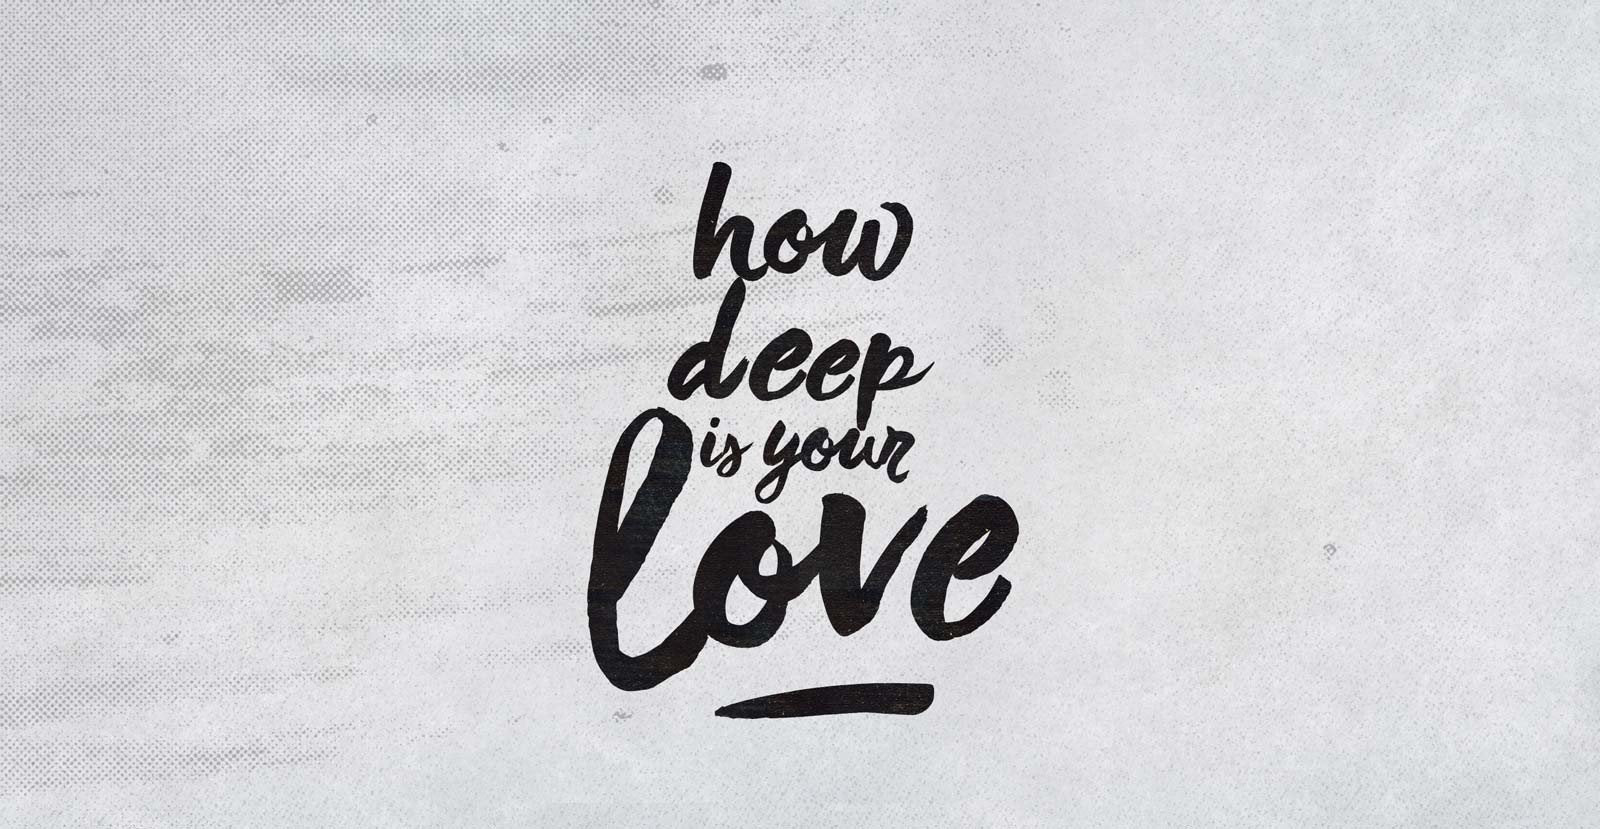 how
deep
is your
love